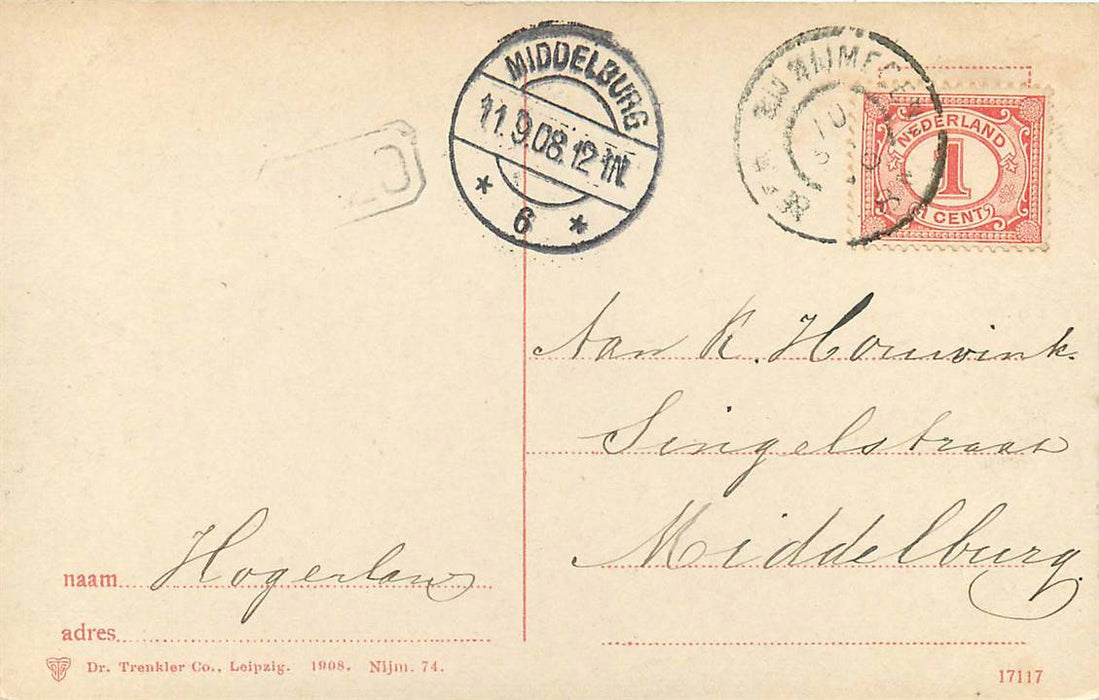 MIDDELBURG
11.9.08.12 1N.
* 6 *
NEDERLAND
1
1 CENT
Aan K. Houwink.
Singelstraat
Middelburg.
naam Hogerland
adres
Dr. Trenkler Co., Leipzig. 1908. Nijm. 74.
17117